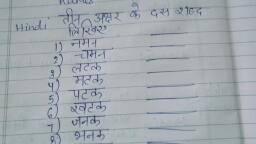 Hindi तीन अक्षर के दस शब्द
लिखिए
1) नमन
2) चमन
3) लटक
4) मटक
5) पटक
6) खटक
7) जनक
8) भनक